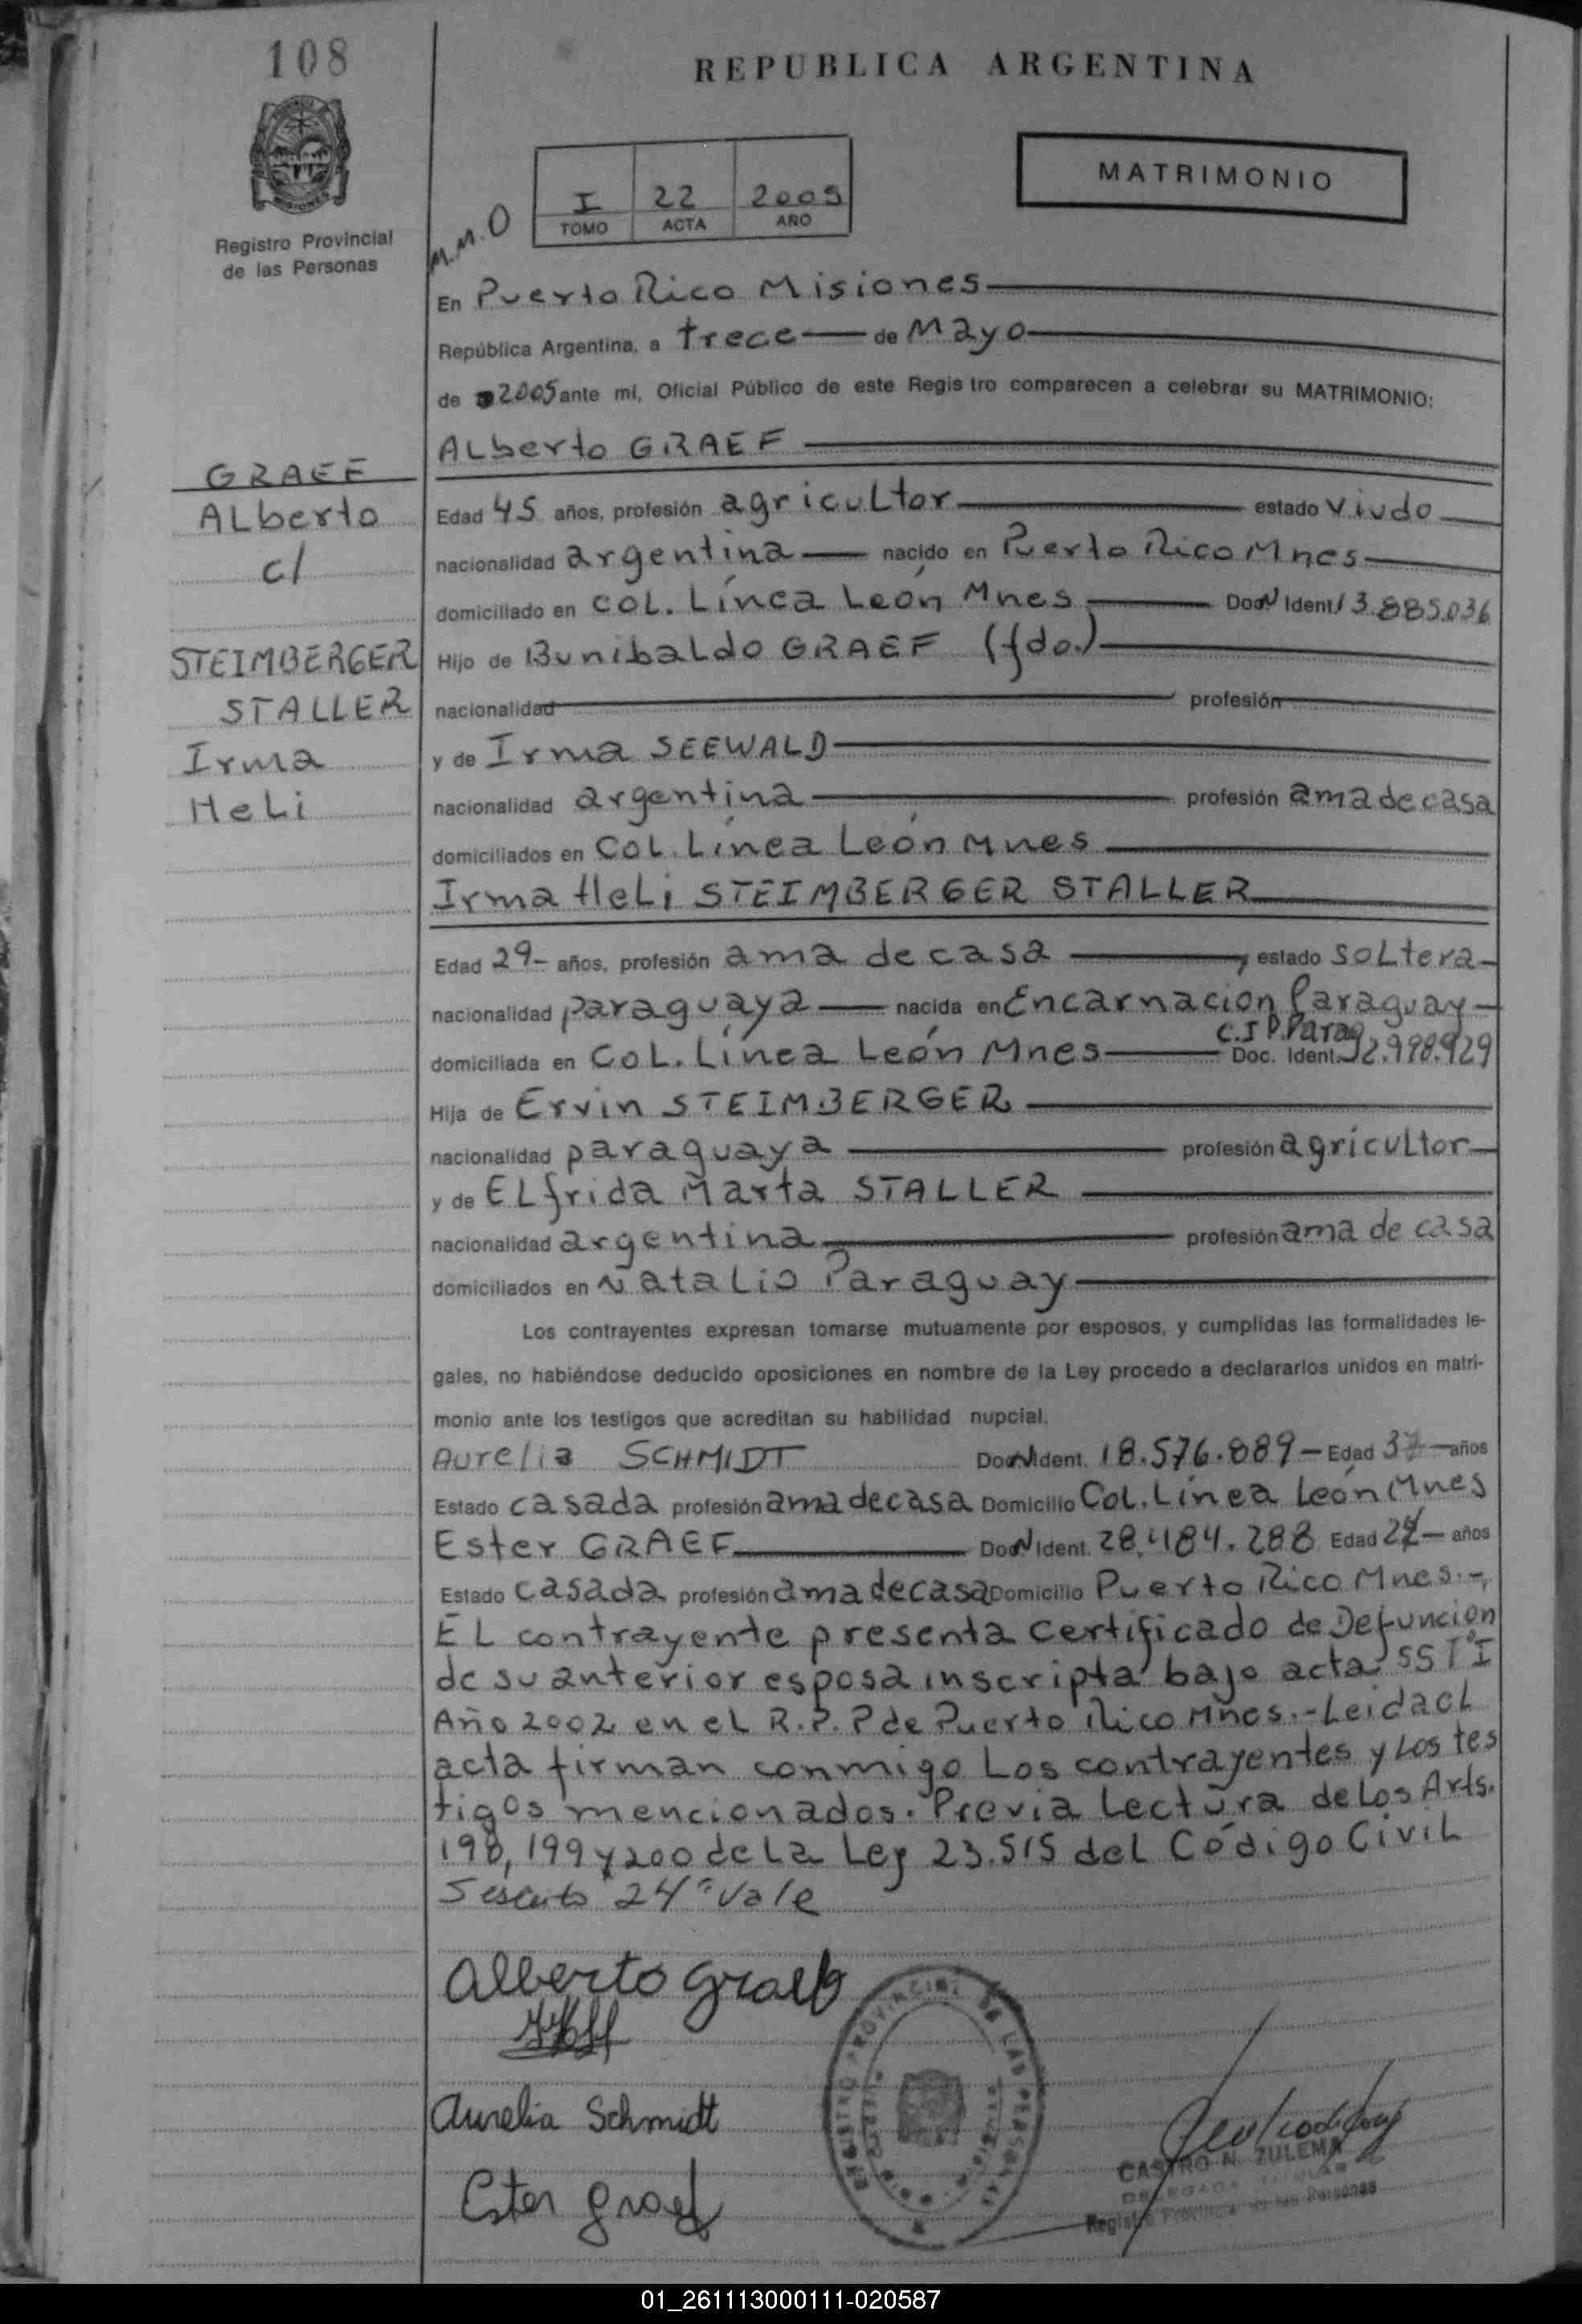 108
REPUBLICA ARGENTINA
MATRIMONIO
I 22 2005
TOMO ACTA AÑO
M.M.O
Registro Provincial
de las Personas
En Puerto Rico Misiones
República Argentina, a trece de Mayo
de 2005 ante mi, Oficial Público de este Regis tro comparecen a celebrar su MATRIMONIO:
ALberto GRAEF
GRAEF
ALberto
c/
STEIMBERGER
STALLER
Irma
HeLi
Edad 45 años, profesión agricuLtor estado Viudo
nacionalidad argentina nacido en Puerto Rico Mnes
domiciliado en COL. Línea León Mnes Doc N Ident. 13.885.036
Hijo de BunibaLdo GRAEF (fdo.)
nacionalidad profesión
y de Irma SEEWALD
nacionalidad argentina profesión ama de casa
domiciliados en COL. Línea León Mnes
Irma HeLi STEIMBERGER STALLER
Edad 29- años, profesión ama de casa estado SoLtera
nacionalidad paraguaya nacida en Encarnacion Paraguay
domiciliada en COL. Línea León Mnes C.I P. Parag Doc. Ident. 2.998.929
Hija de Ervin STEIMBERGER
nacionalidad paraguaya profesión agricuLtor
y de ELfrida Marta STALLER
nacionalidad argentina profesión ama de casa
domiciliados en NataLio Paraguay
Los contrayentes expresan tomarse mutuamente por esposos, y cumplidas las formalidades le-
gales, no habiéndose deducido oposiciones en nombre de la Ley procedo a declararlos unidos en matri-
monio ante los testigos que acreditan su habilidad nupcial.
Aurelia SCHMIDT Doc N Ident. 18.576.889 Edad 37 años
Estado casada profesión ama de casa Domicilio COL. Línea León Mnes
Ester GRAEF Doc N Ident. 28.484.288 Edad 24 años
Estado casada profesión ama de casa Domicilio Puerto Rico Mnes.-
EL contrayente presenta certificado de Defuncion
de su anterior esposa inscripta bajo acta 55 Tº I
Año 2002 en eL R.P.P de Puerto Rico Mnes.-Leida eL
acta firman conmigo Los contrayentes y Los tes
tigos mencionados. Previa Lectura de Los Arts.
198, 199 y 200 de La Ley 23.515 deL Código CiviL
S escrito "24" Vale
Alberto Graef
Aurelia Schmidt
Ester Graef
REGISTRO PROVINCIAL DE LAS PERSONAS
CASTRO N. ZULEMA
DELEGADA TITULAR
Registro Provincial de las Personas
01_261113000111-020587